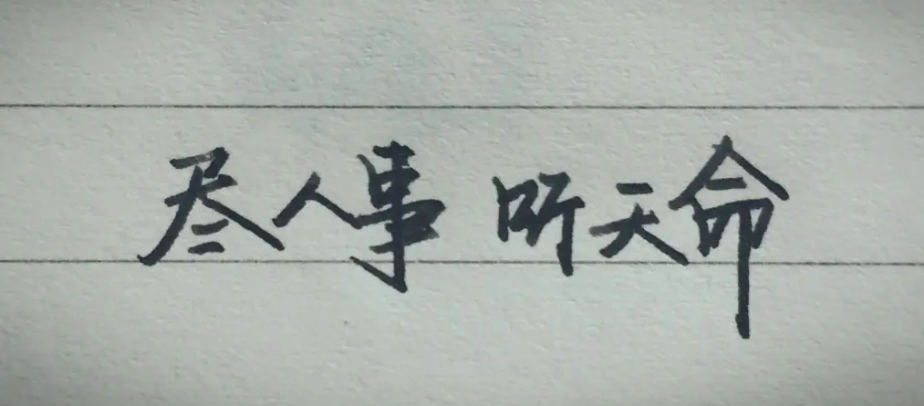 尽人事 听天命